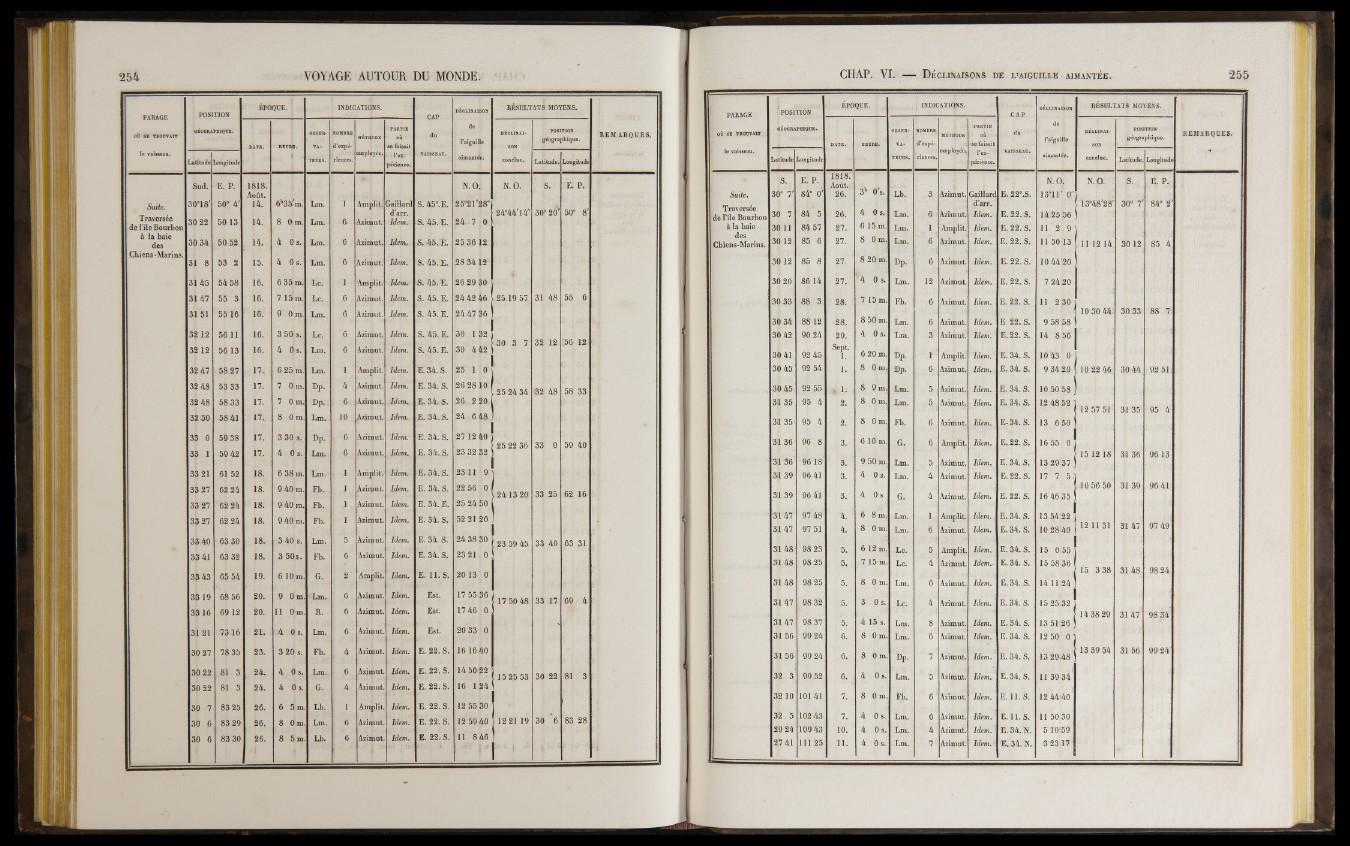 254 VOYAGE AUTOUR DU MONDE.
PARAGE où se trouvait le vaisseau. | POSITION GÉOGRAPHIQUE. Latitude Longitude | ÉPOQUE. DATE. HEURE. | INDICATIONS. OBSERVATEURS. NOMBRE d'expériences. MÉTHODES employées. PARTIE où se faisait l'expérience. | CAP du VAISSEAU. | DÉCLINAISON de l'aiguille aimantée. | RÉSULTATS MOYENS. DÉCLINAISON conclue. POSITION géographique. Latitude. Longitude | REMARQUES.
Sud. E. P. 1818. N. O. N. O. S. E. P.
Suite.
Traversée de l'île Bourbon à la baie des Chiens-Marins.
Août.
30°18' 50° 4' 14. 6h35'm. Lm. 1 Amplit. Gaillard d'arr. S. 45°.E. 25°21'28"
24°44'14" 30° 20' 50° 8'
30 22 50 13 14. 8 0 m. Lm. 6 Azimut. Idem. S. 45. E. 24 7 0
30 34 50 52 14. 4 0 s. Lm. 6 Azimut. Idem. S. 45. E. 25 36 12
31 8 53 2 15. 4 6 s. Lm. 6 Azimut. Idem. S. 45. E. 28 34 12
31 45 54 58 16. 6 35 m. Lc. 1 Amplit. Idem. S. 45. E. 26 29 30
31 47 55 3 16. 7 15 m. Lc. 6 Azimut. Idem. S. 45. E. 24 42 46 25 19 57 31 48 55 6
31 51 55 16 16. 9 0 m. Lm. 6 Azimut. Idem. S. 45. E. 24 47 36
32 12 56 11 16. 3 50 s. Lc. 6 Azimut. Idem. S. 45. E. 30 1 32
30 3 7 32 12 56 12
32 12 56 13 16. 4 0 s. Lm. 6 Azimut. Idem. S. 45. E. 30 4 42
32 47 58 27 17. 6 25 m. Lm. 1 Amplit. Idem. E. 34. S. 25 1 0
32 48 53 33 17. 7 0 m. Dp. 4 Azimut. Idem. E. 34. S. 26 28 10
25 24 34 32 48 58 33
32 48 58 33 17. 7 0 m. Dp. 6 Azimut. Idem. E. 34. S. 26 2 20
32 50 58 41 17. 8 0 m. Lm. 10 Azimut. Idem. E. 34. S. 24 6 48
33 0 59 38 17. 3 30 s. Dp. 6 Azimut. Idem. E. 34. S. 27 12 40
25 22 36 33 0 59 40
33 1 59 42 17. 4 0 s. Lm. 6 Azimut. Idem. E. 34. S. 23 32 32
33 21 61 52 18. 6 38 m. Lm. 1 Amplit. Idem. E. 34. S. 25 11 9
33 27 62 24 18. 9 40 m. Fb. 1 Azimut. Idem. E. 34. S. 22 56 0
24 13 20 33 25 62 16
33 27 62 24 18. 9 40 m. Fb. 1 Azimut. Idem. E. 34. E. 25 24 50
33 27 62 24 18. 9 40 m. Fb. 1 Azimut. Idem. E. 34. S. 52 21 20
33 40 63 30 18. 5 40 s. Lm. 5 Azimut. Idem. E. 34. S. 24 38 30
23 59 45 33 40 63 31
33 41 63 32 18. 3 50 s. Fb. 6 Azimut. Idem. E. 34. S. 23 21 0
33 43 65 54 19. 6 10 m. G. 2 Amplit. Idem. E. 11. S. 20 13 0
33 19 68 56 20. 9 0 m. Lm. 6 Azimut. Idem. Est. 17 55 36
17 50 48 33 17 69 4
33 16 69 12 20. 11 0 m. R. 6 Azimut. Idem. Est. 17 46 0
31 21 73 16 21. 4 0 s. Lm. 6 Azimut. Idem. Est. 20 33 0
30 27 78 35 23. 3 20 s. Fb. 4 Azimut. Idem. E. 22. S. 16 16 40
30 22 81 3 24. 4 0 s. Lm. 6 Azimut. Idem. E. 22. S. 14 50 22
15 25 53 30 22 81 3
30 22 81 3 24. 4 0 s. G. 4 Azimut. Idem. E. 22. S. 16 1 24
30 7 83 25 26. 6 5 m. Lb. 1 Amplit. Idem. E. 22. S. 12 55 30
30 6 83 29 26. 8 0 m. Lm. 6 Azimut. Idem. E. 22. S. 12 59 40 12 21 19 30 6 83 28
30 6 83 30 26. 8 5 m. Lb. 6 Azimut. Idem. E. 22. S. 11 8 46
CHAP. VI. — DÉCLINAISONS DE L'AIGUILLE AIMANTÉE. 255
PARAGE où se trouvait le vaisseau. | POSITION GÉOGRAPHIQUE. Latitude Longitude | ÉPOQUE. DATE. HEURE. | INDICATIONS. OBSERVATEURS. NOMBRE d'expériences. MÉTHODES employées. PARTIE où se faisait l'expérience. | CAP du VAISSEAU. | DÉCLINAISON de l'aiguille aimantée. | RÉSULTATS MOYENS. DÉCLINAISON conclue. POSITION géographique. Latitude. Longitude | REMARQUES.
S. E. P. 1818. N. O. N. O. S. E. P.
Suite.
Traversée de l'île Bourbon à la baie des Chiens-Marins.
Août.
30° 7' 84° 0' 26. 3h 0's. Lb. 3 Azimut. Gaillard d'arr. E. 22°.S. 13°11' 0"
13°48'28" 30° 7' 84° 2'
30 7 84 5 26. 4 0 s. Lm. 6 Azimut. Idem. E. 22. S. 14 25 56
30 11 84 57 27. 6 15 m. Lm. 1 Amplit. Idem. E. 22. S. 11 2 9
30 12 85 6 27. 8 0 m. Lm. 6 Azimut. Idem. E. 22. S. 11 50 13 11 12 14 30 12 85 4
30 12 85 8 27. 8 20 m. Dp. 6 Azimut. Idem. E. 22. S. 10 44 20
30 20 86 14 27. 4 0 s. Lm. 12 Azimut. Idem. E. 22. S. 7 24 20
30 33 88 3 28. 7 15 m. Fb. 6 Azimut. Idem. E. 22. S. 11 2 30
10 30 44 30 33 88 7
30 34 88 12 28. 8 50 m. Lm. 6 Azimut. Idem. E 22. S. 9 58 58
30 42 90 24 29. 4 0 s. Lm. 3 Azimut. Idem. E. 22. S. 14 8 56
Sept.
30 41 92 45 1. 6 20 m. Dp. 1 Amplit. Idem. E. 34. S. 10 43 0
30 45 92 54 1. 8 0 m. Dp. 6 Azimut. Idem. E. 34. S. 9 34 20 10 22 46 30 44 92 51
30 45 92 55 1. 8 9 m. Lm. 5 Azimut. Idem. E. 34. S. 10 50 58
31 35 95 4 2. 8 0 m. Lm. 5 Azimut. Idem. E. 34. S. 12 48 52
12 57 51 31 35 95 4
31 35 95 4 2. 8 0 m. Fb. 6 Azimut. Idem. E-34. S. 13 6 50
31 36 96 8 3. 6 10 m. G. 6 Amplit. Idem. E. 22. S. 16 55 0
15 12 18 31 36 96 13
31 36 96 18 3. 9 50 m. Lm. 5 Azimut. Idem. E. 34. S. 13 29 37
31 39 96 41 3. 4 0 s. Lm. 4 Azimut. Idem. E. 22. S. 17 7 5
16 56 50 31 39 96 41
31 39 96 41 3. 4 0 s G. 4 Azimut. Idem. E. 22. S. 16 46 35
31 47 97 48 4. 6 8 m. Lm. 1 Amplit. Idem. E. 34. S. 13 54 22
12 11 31 31 47 97 49
31 47 97 51 4. 8 0 m. Lm. 6 Azimut. Idem. E. 34. S. 10 28 40
31 48 98 23 5. 6 12 m. Lc. 5 Amplit. Idem. E. 34. S. 15 0 55
31 48 98 25 5. 7 15 m. Lc. 4 Azimut. Idem. E. 34. S. 15 58 36
15 3 38 31 48 98 24
31 48 98 25 5. 8 0 m. Lm. 6 Azimut. Idem. E. 34. S. 14 11 24
31 47 98 32 5. 3 0 s. Lc. 4 Azimut. Idem. E. 34. S. 15 25 32
14 38 29 31 47 98 34
31 47 98 37 5. 4 15 s. Lm. 8 Azimut. Idem. E. 34. S. 13 51 26
31 56 99 24 6. 8 0 m. Lm. 6 Azimut. Idem. E. 34. S. 12 50 0
13 39 54 31 56 99 24
31 56 99 24 6. 8 0 m. Dp. 7 Azimut. Idem. E. 34. S. 13 29 48
32 3 99 52 6. 4 0 s. Lm. 5 Azimut. Idem. E. 34. S. 11 39 34
32 10 101 41 7. 8 0 m. Fb. 6 Azimut. Idem. E. 11. S. 12 44 40
32 5 102 43 7. 4 0 s. Lm. 6 Azimut. Idem. E. 11. S. 11 50 30
29 24 109 43 10. 4 0 s. Lm. 4 Azimut. Idem. E. 34. N. 5 10 59
27 41 111 25 11. 4 0 s. Lm. 7 Azimut. Idem. E. 34. N. 3 23 17